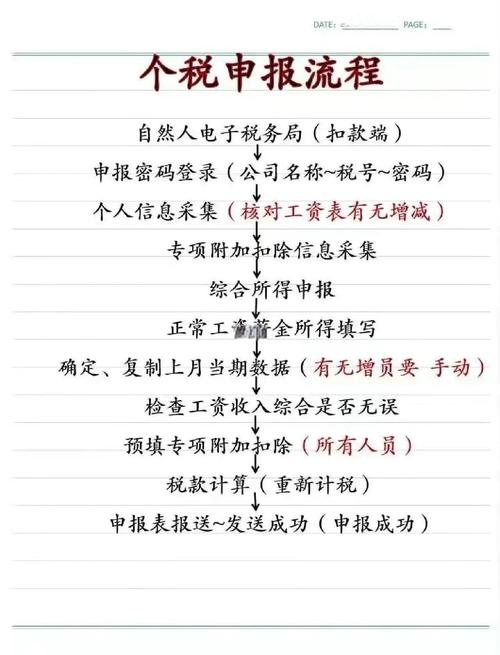 DATE: PAGE:
个税申报流程
自然人电子税务局（扣款端）
申报密码登录（公司名称~税号~密码）
个人信息采集（核对工资表有无增减）
专项附加扣除信息采集
综合所得申报
正常工资薪金所得填写
确定、复制上月当期数据（有无增员要 手动）
检查工资收入综合是否无误
预填专项附加扣除（所有人员）
税款计算（重新计税）
申报表报送~发送成功（申报成功）